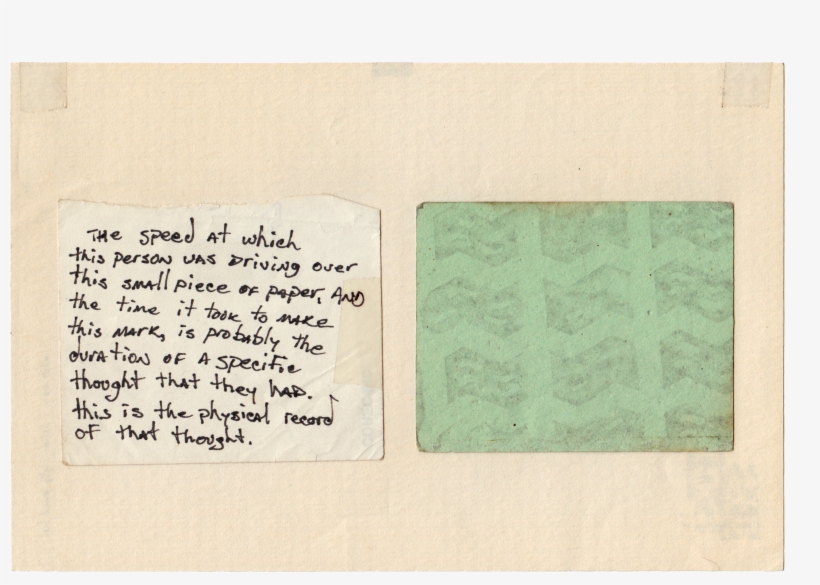 THE SPEED AT which
this person was Driving over
this small piece of paper, AND
the time it took to make
this mark, is probably the
duration of A specific
thought that they had.
this is the physical record
of that thought.